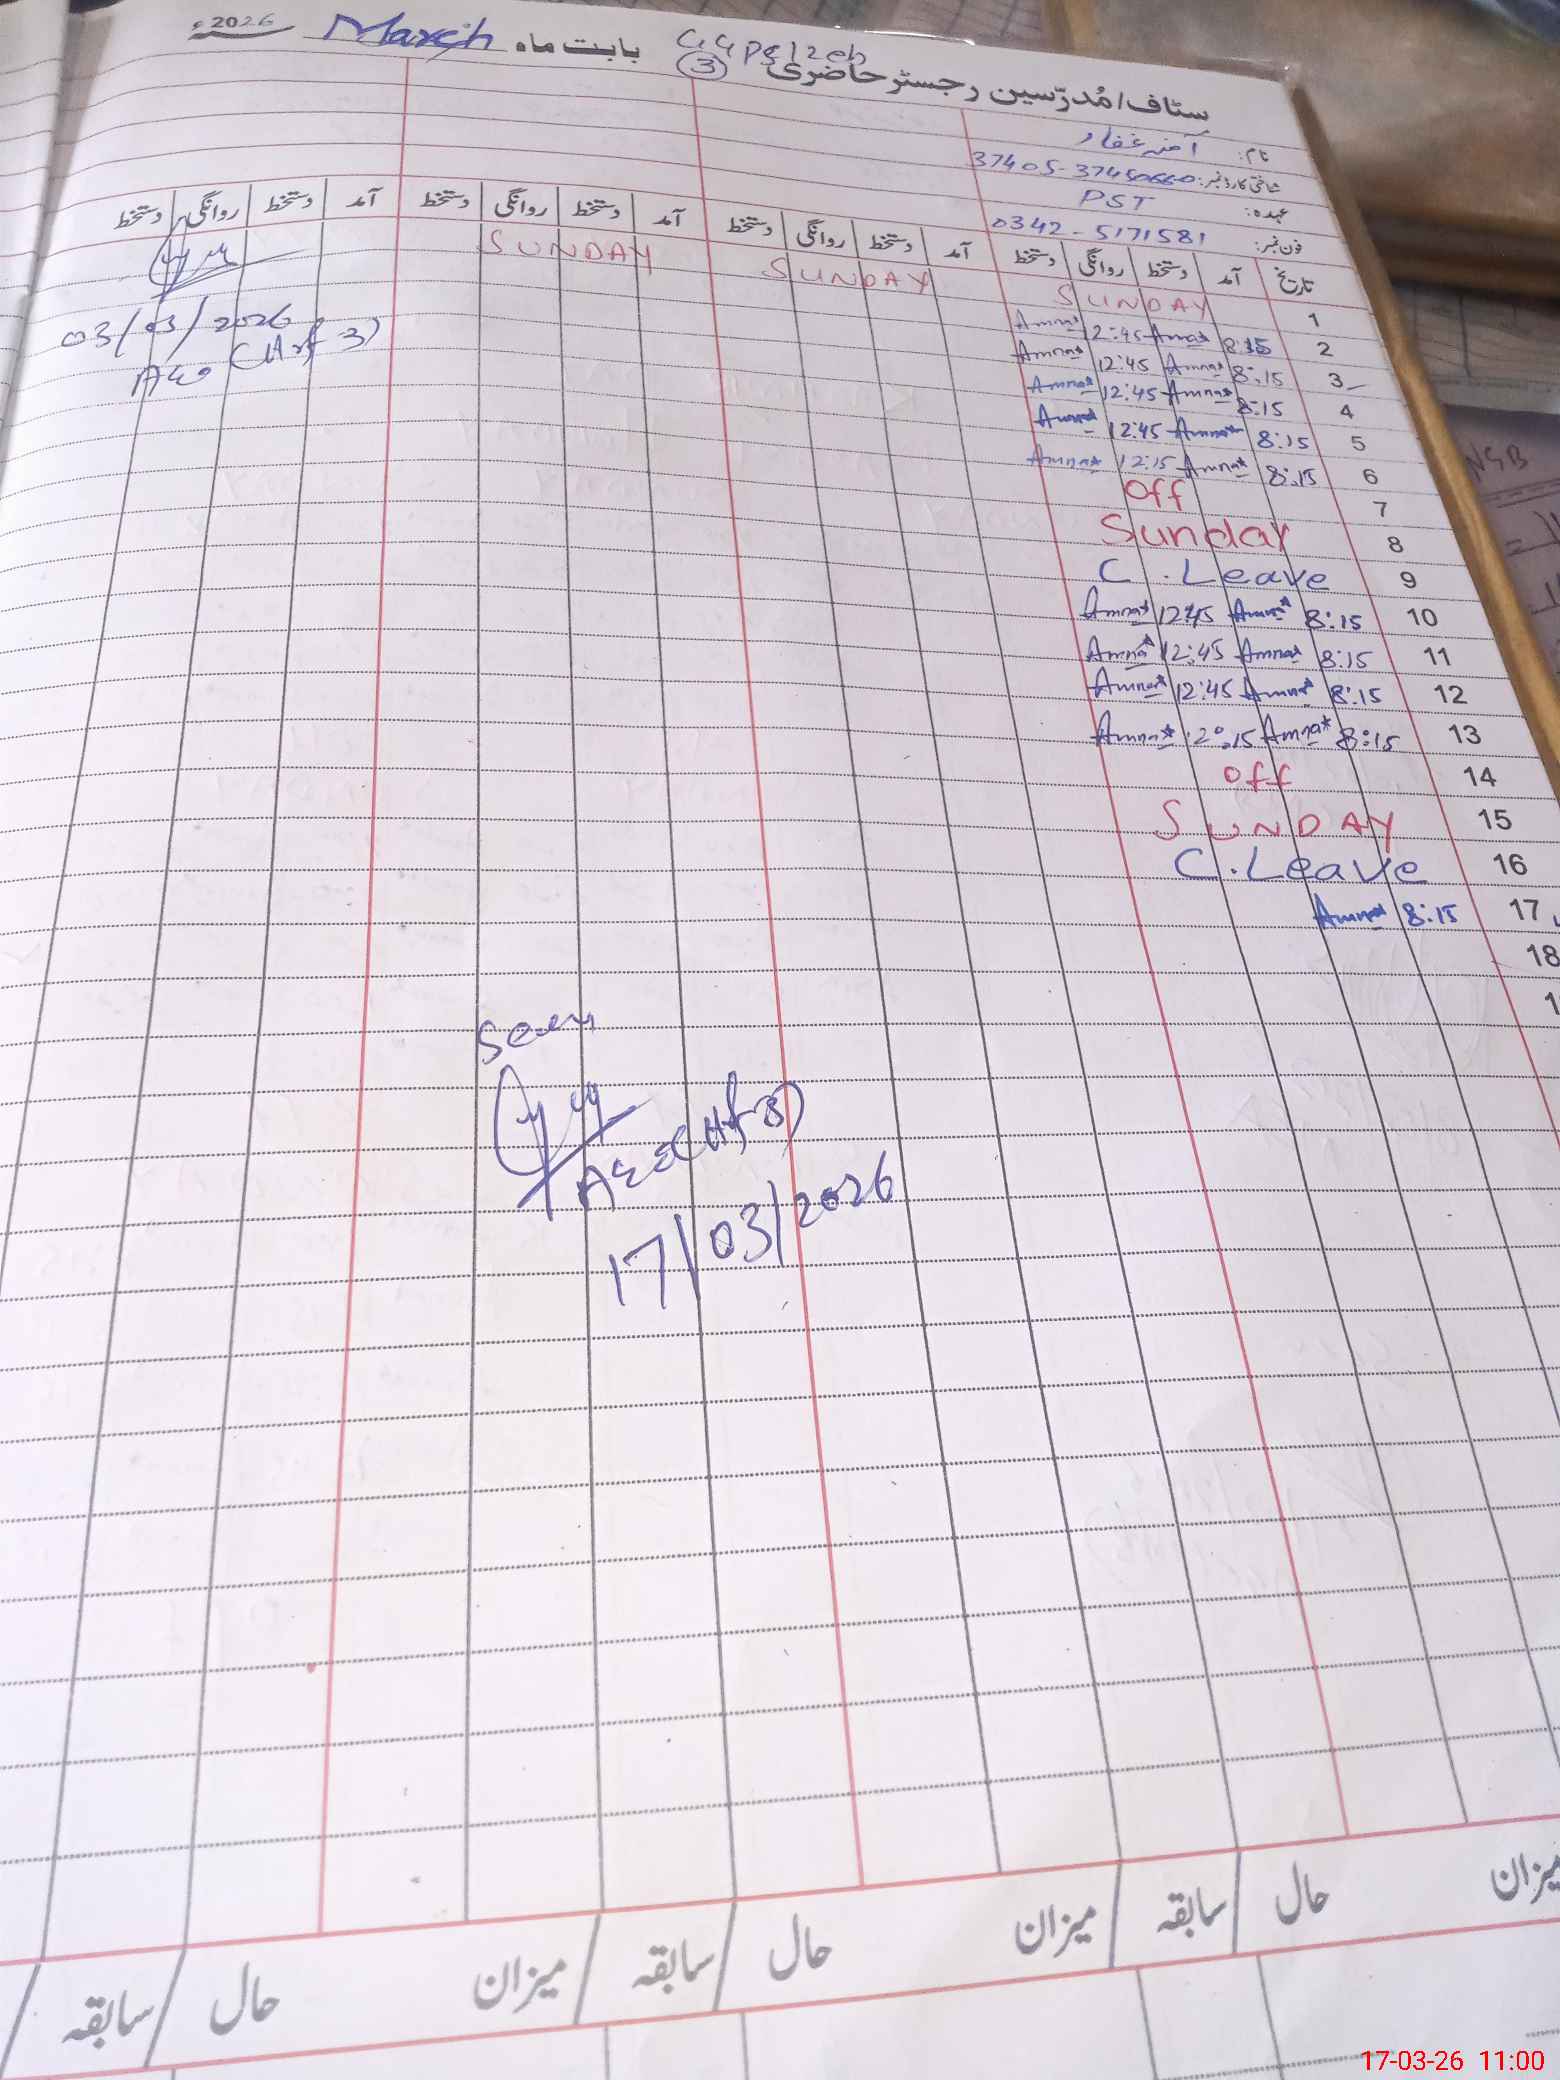 سٹاف/مُدرّسین رجسٹر حاضری بابت ماہ March 2026ء
3
نام: آمنہ غفار
شناختی کارڈ نمبر: 37405-3745
عہدہ: PST
فون نمبر: 0342-5171581
تاریخ آمد دستخط روانگی دستخط آمد دستخط روانگی دستخط آمد دستخط روانگی دستخط آمد دستخط روانگی دستخط
1 SUNDAY SUNDAY SUNDAY
2 8:15 Amna 12:45 Amna
3 8:15 Amna 12:45 Amna
4 8:15 Amna 12:45 Amna
5 8:15 Amna 12:45 Amna
6 8:15 Amna 12:15 Amna
7 Off
8 Sunday
9 C. Leave
10 8:15 Amna 12:45 Amna
11 8:15 Amna 12:45 Amna
12 8:15 Amna 12:45 Amna
13 8:15 Amna 12:15 Amna
14 Off
15 SUNDAY
16 C. Leave
17 8:15 Amna
18
03/03/2026
Seen
17/03/2026
میزان حال سابقہ میزان حال سابقہ میزان حال سابقہ
17-03-26 11:00